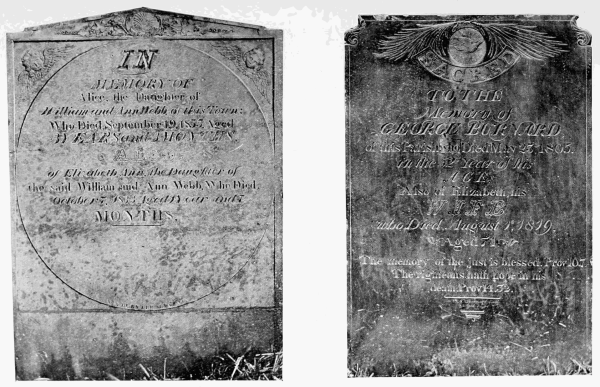 IN
MEMORY OF
Alice, the Daughter of
William and Ann Webb of this Town:
Who Died September 19, Aged
YEARS and MONTHS.
ALSO
of Elizabeth Ann, the Daughter of
the said William and Ann Webb, Who Died,
October 7, Aged 1 Year and 7
MONTHS.
SACRED
TO THE
Memory of
GEORGE
of this Parish who Died May 23, 1803.
in the Year of his
AGE.
Also of Elizabeth, his
WIFE
who Died, August 1, 1819,
Aged 71
The memory of the just is blessed. Prov 10.7
The righteous hath hope in his
death. Prov 14.32.